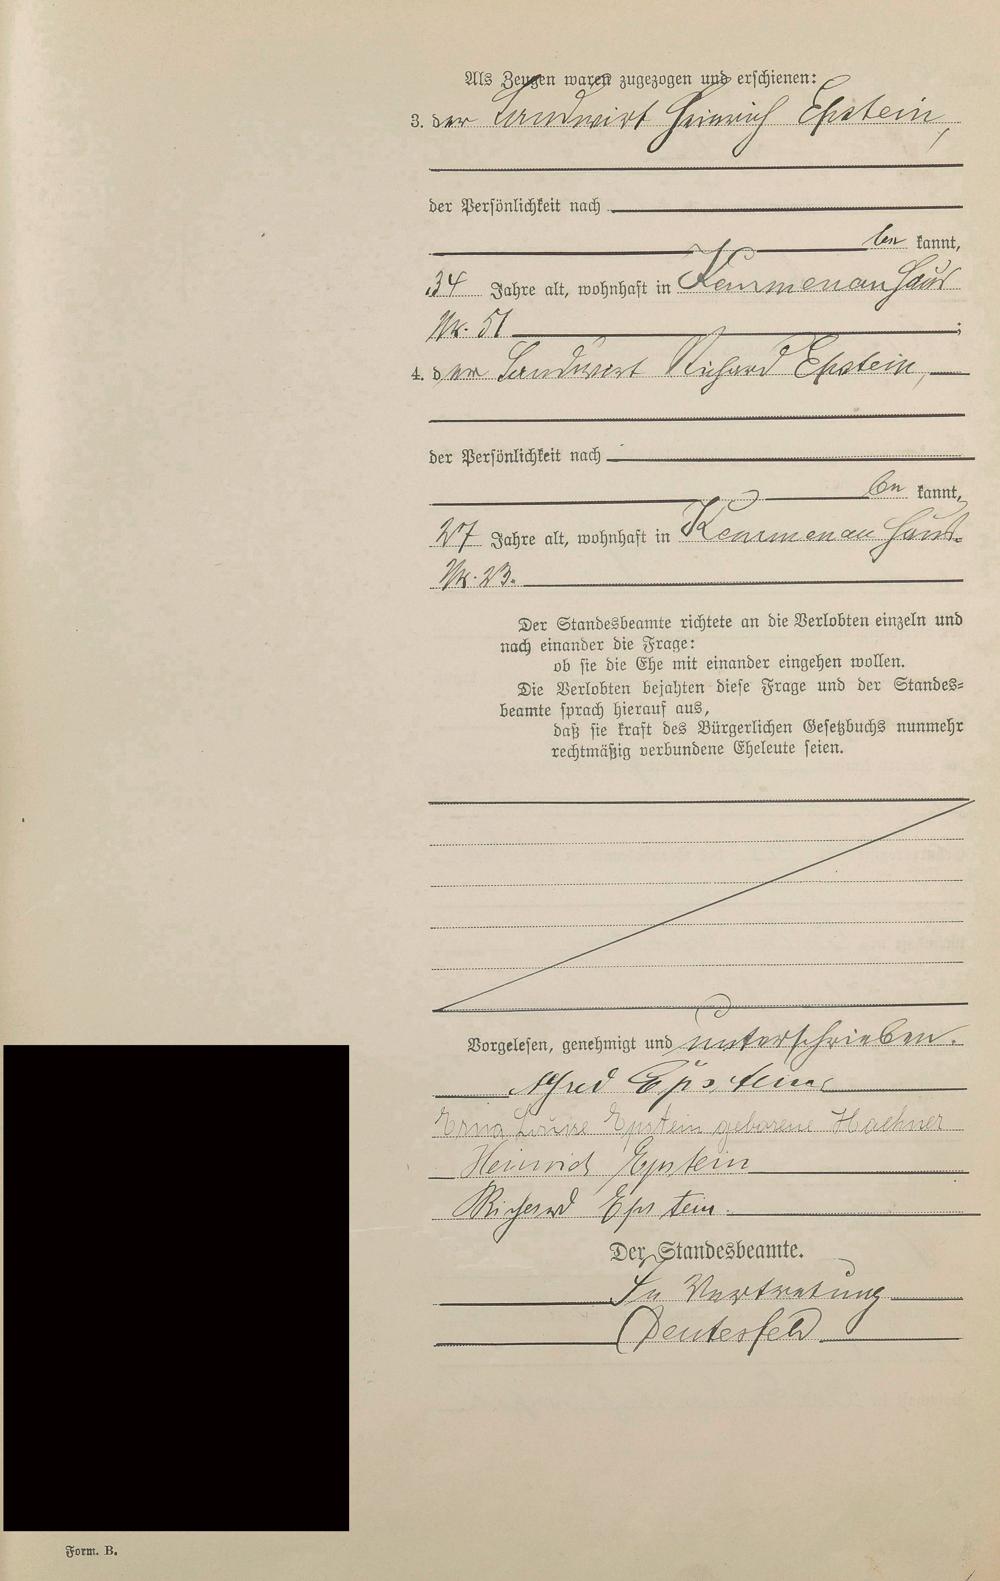 Als Zeugen waren zugezogen und erschienen:
3. der Landwirt Heinrich Epstein,
der Persönlichkeit nach
be kannt,
34 Jahre alt, wohnhaft in Kemmenau Haus
Nr. 51 ;
4. der Landwirt Richard Epstein,
der Persönlichkeit nach
be kannt,
27 Jahre alt, wohnhaft in Kemmenau Haus
Nr. 23.
Der Standesbeamte richtete an die Verlobten einzeln und
nach einander die Frage:
ob sie die Ehe mit einander eingehen wollen.
Die Verlobten bejahten diese Frage und der Standes=
beamte sprach hierauf aus,
daß sie kraft des Bürgerlichen Gesetzbuchs nunmehr
rechtmäßig verbundene Eheleute seien.
Vorgelesen, genehmigt und unterschrieben.
Alfred Epstein
Erna Luise Epstein geborene Haehner
Heinrich Epstein
Richard Epstein.
Der Standesbeamte.
In Vertretung
Deutesfeld
Form. B.